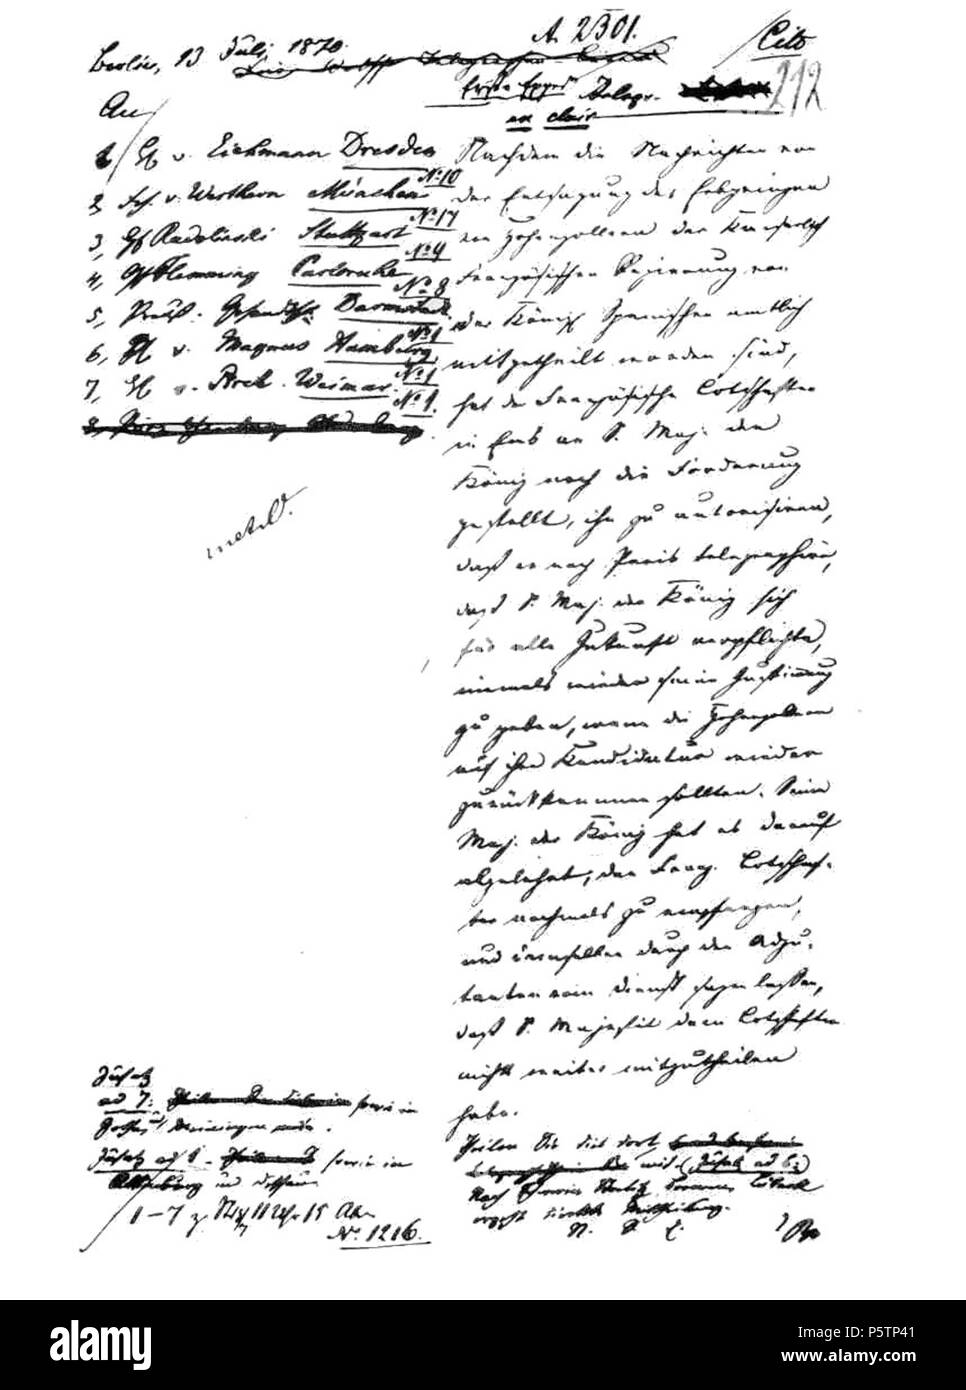 Berlin, 13 Juli 1870.
A. 2301.
Cito
212
Telegr.
en clair
An
1, v. Eichmann Dresden
No 10
2, v. Werthern München
No 17
3, Gf Radolinski Stuttgart
No 9
4, Gf Flemming Carlsruhe
No 8
5, Preuß. Gesandtsch. Darmstadt
No 1
6, v. Magnus Hamburg
No 1
7, v. Pirch. Weimar
No 1.
Nachdem die Nachrichten von
der Entsagung des Erbprinzen
von Hohenzollern der Kaiserlich
Französischen Regierung von
der Königl Spanischen amtlich
mitgetheilt worden sind,
hat der Französische Botschafter
in Ems an S. Maj. den
König noch die Forderung
gestellt, ihn zu autorisiren,
daß er nach Paris telegraphire,
daß S. Maj. der König sich
für alle Zukunft verpflichte,
niemals wieder seine Zustimmung
zu geben, wenn die Hohenzollern
auf ihre Kandidatur wieder
zurückkommen sollten. Seine
Maj. der König hat es darauf
abgelehnt, den Franz. Botschaf-
ter nochmals zu empfangen,
und demselben durch den Adju-
tanten vom Dienst sagen lassen,
daß S. Majestät dem Botschafter
nichts weiter mitzutheilen
habe.
Zusatz
ad 7: sowie in
Zusatz ad sowie in
Altenburg und Dessau
1-7 z. Stat 11 Uhr 15 Ab
No. 1216.
Theilen Sie dies dort
mit (Zusatz ad 6:)
Nach Lübeck
ergeht direkte Mittheilung.
N. S. E.
alamy
Image ID: P5TP41
www.alamy.com